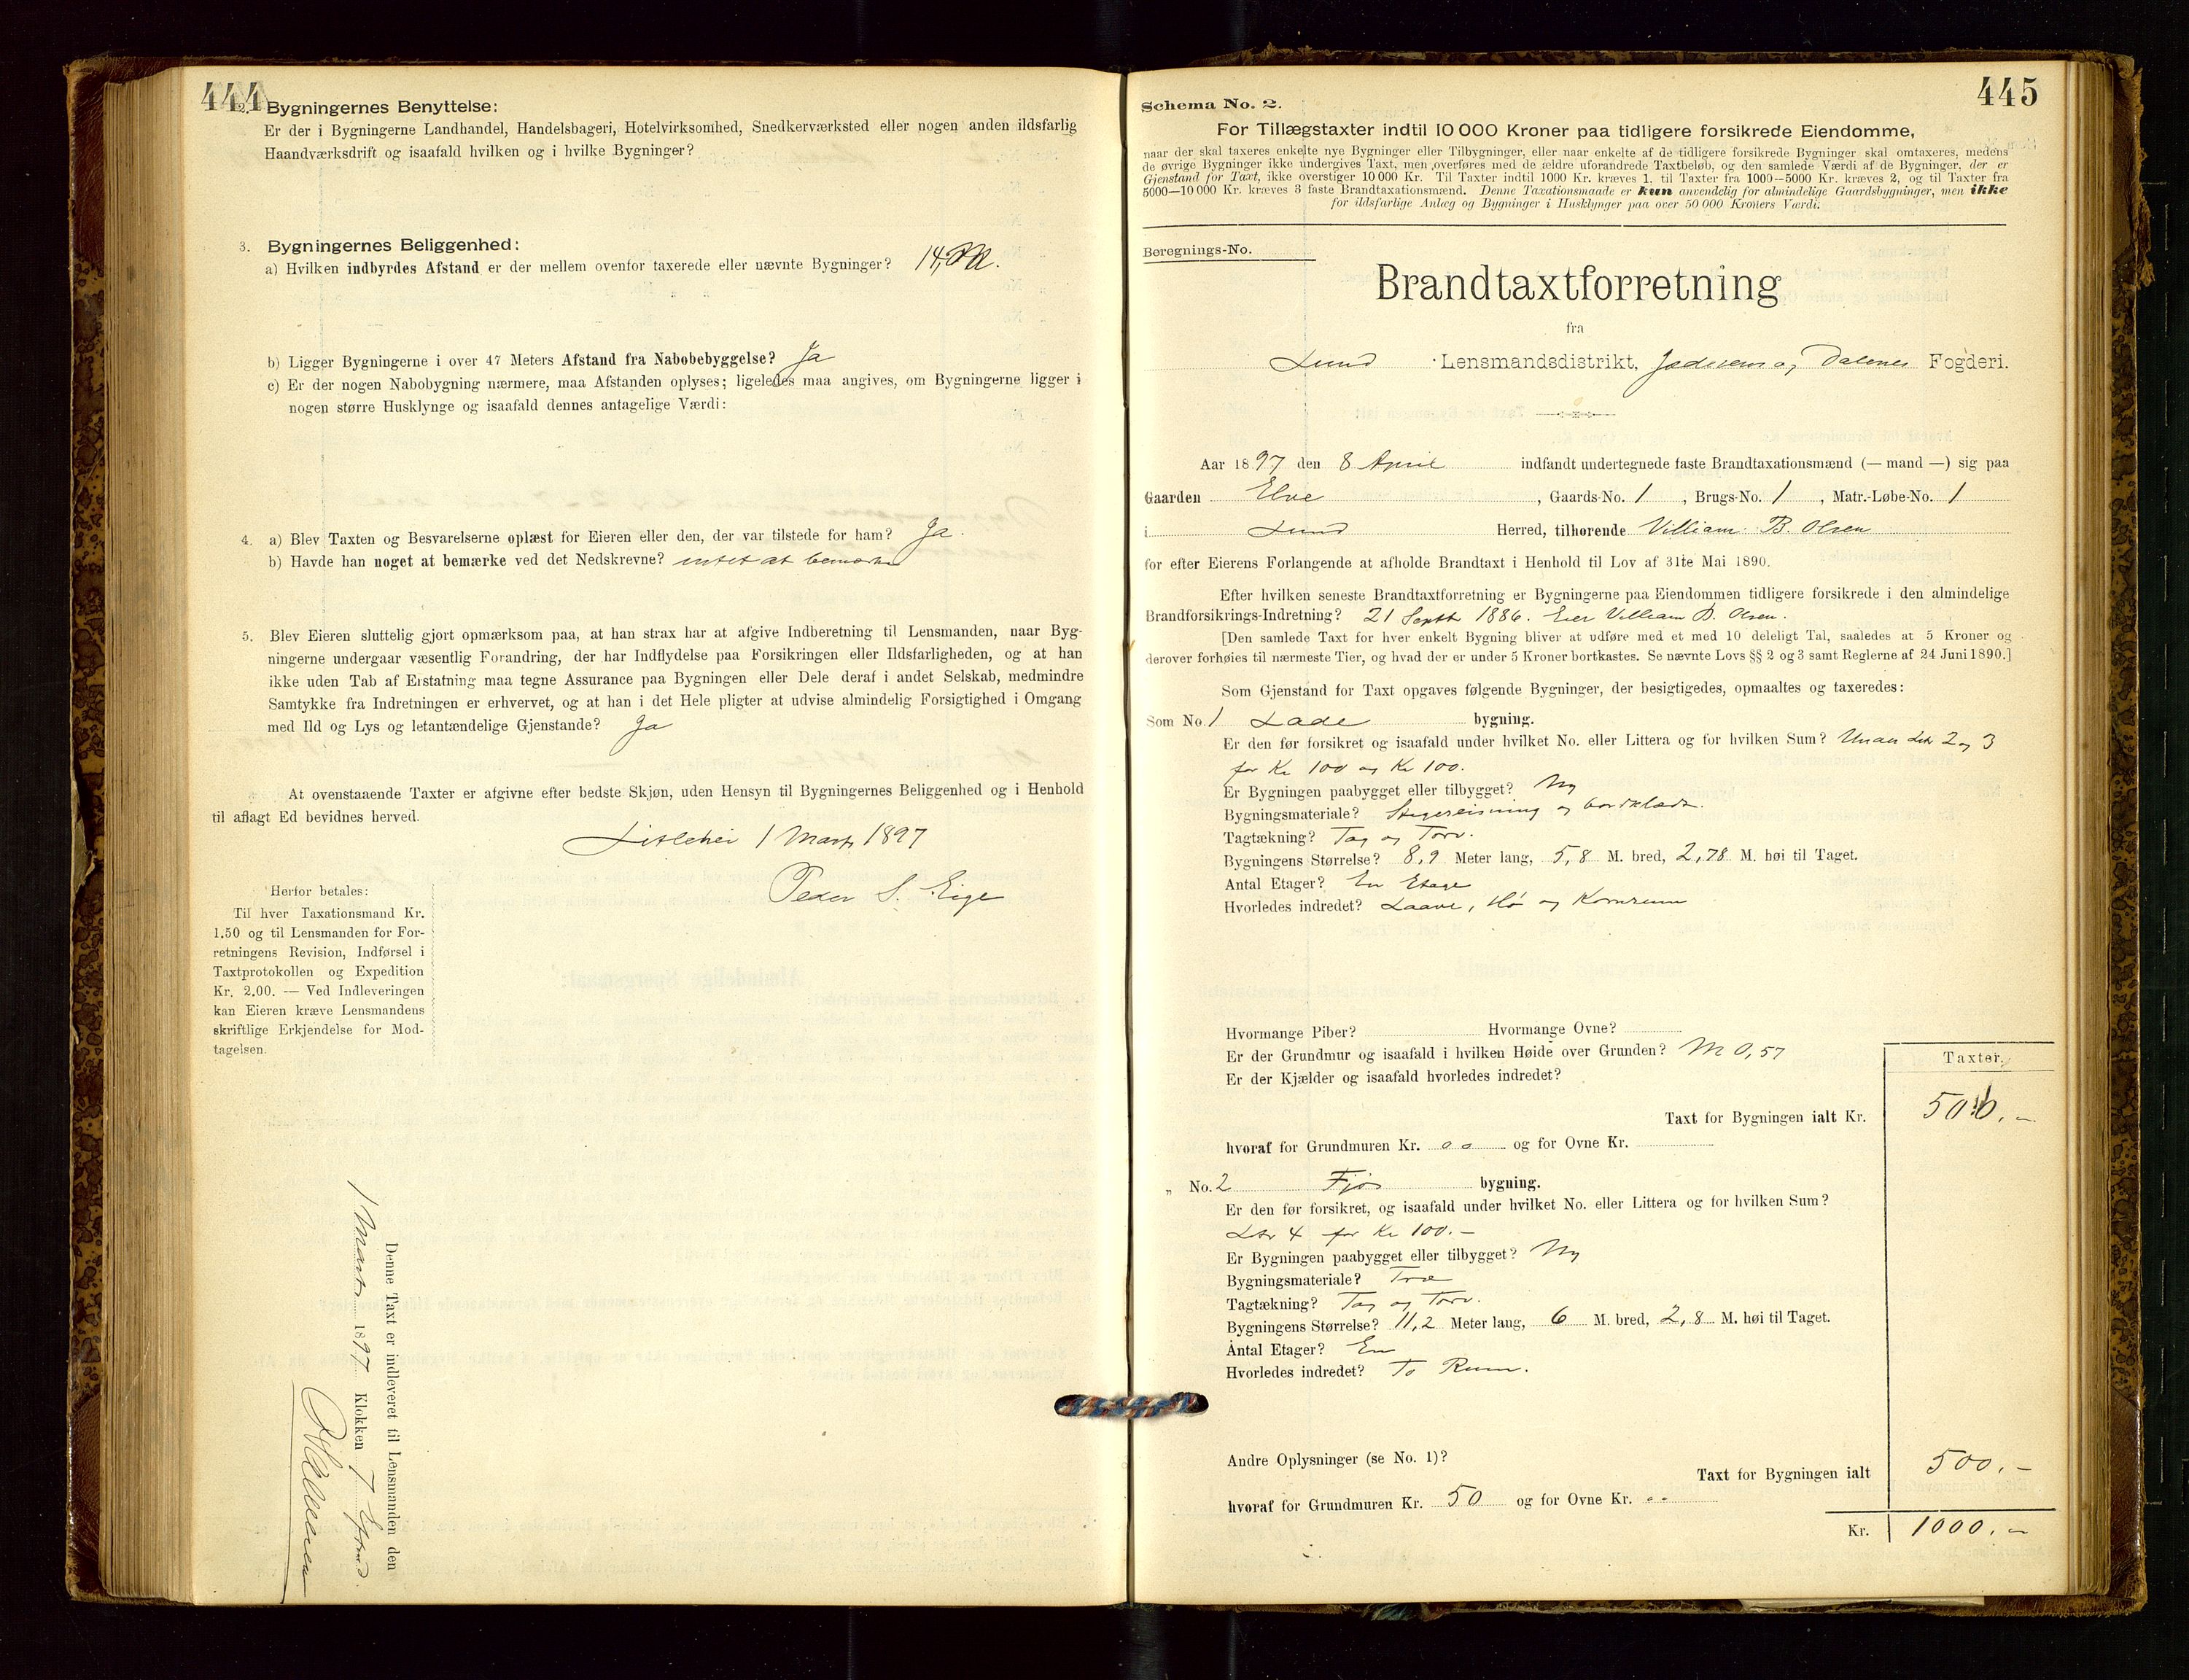 444
2. Bygningernes Benyttelse:
Er der i Bygningerne Landhandel, Handelsbageri, Hotelvirksomhed, Snedkerværksted eller nogen anden ildsfarlig
Haandværksdrift og isaafald hvilken og i hvilke Bygninger?
3. Bygningernes Beliggenhed:
a) Hvilken indbyrdes Afstand er der mellem ovenfor taxerede eller nævnte Bygninger? 14, M.
b) Ligger Bygningerne i over 47 Meters Afstand fra Nabobebyggelse? Ja
c) Er der nogen Nabobygning nærmere, maa Afstanden oplyses; ligeledes maa angives, om Bygningerne ligger i
nogen større Husklynge og isaafald dennes antagelige Værdi:
4. a) Blev Taxten og Besvarelserne oplæst for Eieren eller den, der var tilstede for ham? Ja.
b) Havde han noget at bemærke ved det Nedskrevne? intet at bemærke
5. Blev Eieren sluttelig gjort opmærksom paa, at han strax har at afgive Indberetning til Lensmanden, naar Byg-
ningerne undergaar væsentlig Forandring, der har Indflydelse paa Forsikringen eller Ildsfarligheden, og at han
ikke uden Tab af Erstatning maa tegne Assurance paa Bygningen eller Dele deraf i andet Selskab, medmindre
Samtykke fra Indretningen er erhvervet, og at han i det Hele pligter at udvise almindelig Forsigtighed i Omgang
med Ild og Lys og letantændelige Gjenstande? Ja
At ovenstaaende Taxter er afgivne efter bedste Skjøn, uden Hensyn til Bygningernes Beliggenhed og i Henhold
til aflagt Ed bevidnes herved.
Litlehei 1 Marts 1897
Peder S. Eige
Herfor betales:
Til hver Taxationsmand Kr.
1.50 og til Lensmanden for For-
retningens Revision, Indførsel i
Taxtprotokollen og Expedition
Kr. 2.00. — Ved Indleveringen
kan Eieren kræve Lensmandens
skriftlige Erkjendelse for Mod-
tagelsen.
Denne Taxt er indleveret til Lensmanden den
1 Marts 1897 Klokken 7 Eftmd.
445
Schema No. 2.
For Tillægstaxter indtil 10 000 Kroner paa tidligere forsikrede Eiendomme,
naar der skal taxeres enkelte nye Bygninger eller Tilbygninger, eller naar enkelte af de tidligere forsikrede Bygninger skal omtaxeres, medens
de øvrige Bygninger ikke undergives Taxt, men overføres med de ældre uforandrede Taxtbeløb, og den samlede Værdi af de Bygninger, der er
Gjenstand for Taxt, ikke overstiger 10 000 Kr. Til Taxter indtil 1000 Kr. kræves 1, til Taxter fra 1000—5000 Kr. kræves 2, og til Taxter fra
5000—10 000 Kr. kræves 3 faste Brandtaxationsmænd. Denne Taxationsmaade er kun anvendelig for almindelige Gaardsbygninger, men ikke
for ildsfarlige Anlæg og Bygninger i Husklynger paa over 50 000 Kroners Værdi.
Beregnings-No.
Brandtaxtforretning
fra
Lund Lensmandsdistrikt, Jæderens og Dalenes Fogderi.
Aar 1897 den 8 April indfandt undertegnede faste Brandtaxationsmænd (— mand —) sig paa
Gaarden Elve, Gaards-No. 1, Brugs-No. 1, Matr.-Løbe-No. 1
i Lund Herred, tilhørende Villiam B. Olsen
for efter Eierens Forlangende at afholde Brandtaxt i Henhold til Lov af 31te Mai 1890.
Efter hvilken seneste Brandtaxtforretning er Bygningerne paa Eiendommen tidligere forsikrede i den almindelige
Brandforsikrings-Indretning? 21 Septbr 1886. Eier Villiam B. Olsen.
[Den samlede Taxt for hver enkelt Bygning bliver at udføre med et med 10 deleligt Tal, saaledes at 5 Kroner og
derover forhøies til nærmeste Tier, og hvad der er under 5 Kroner bortkastes. Se nævnte Lovs §§ 2 og 3 samt Reglerne af 24 Juni 1890.]
Som Gjenstand for Taxt opgaves følgende Bygninger, der besigtigedes, opmaaltes og taxeredes:
Som No. 1 Lade bygning.
Er den før forsikret og isaafald under hvilket No. eller Littera og for hvilken Sum? Under Litr 2 og 3
for Kr 100 og Kr 100.
Er Bygningen paabygget eller tilbygget? Ny
Bygningsmateriale? Stavreisning og bordklædn.
Tagtækning? Tag og Torv.
Bygningens Størrelse? 8,9 Meter lang, 5,8 M. bred, 2,78 M. høi til Taget.
Antal Etager? En Etage
Hvorledes indredet? Laave, Hø og Kornrum
Hvormange Piber? Hvormange Ovne?
Er der Grundmur og isaafald i hvilken Høide over Grunden? M 0,57
Er der Kjælder og isaafald hvorledes indredet?
Taxter.
Taxt for Bygningen ialt Kr. 500.–
hvoraf for Grundmuren Kr. „ „ og for Ovne Kr.
„ No. 2 Fjøs bygning.
Er den før forsikret, og isaafald under hvilket No. eller Littera og for hvilken Sum?
Litr 4 for Kr 100.–
Er Bygningen paabygget eller tilbygget? Ny
Bygningsmateriale? Træ
Tagtækning? Tag og Torv.
Bygningens Størrelse? 11,2 Meter lang, 6 M. bred, 2,8 M. høi til Taget.
Antal Etager? En
Hvorledes indredet? To Rum.
Andre Oplysninger (se No. 1)?
Taxt for Bygningen ialt 500.–
hvoraf for Grundmuren Kr. 50 og for Ovne Kr. „ „
Kr. 1000.–